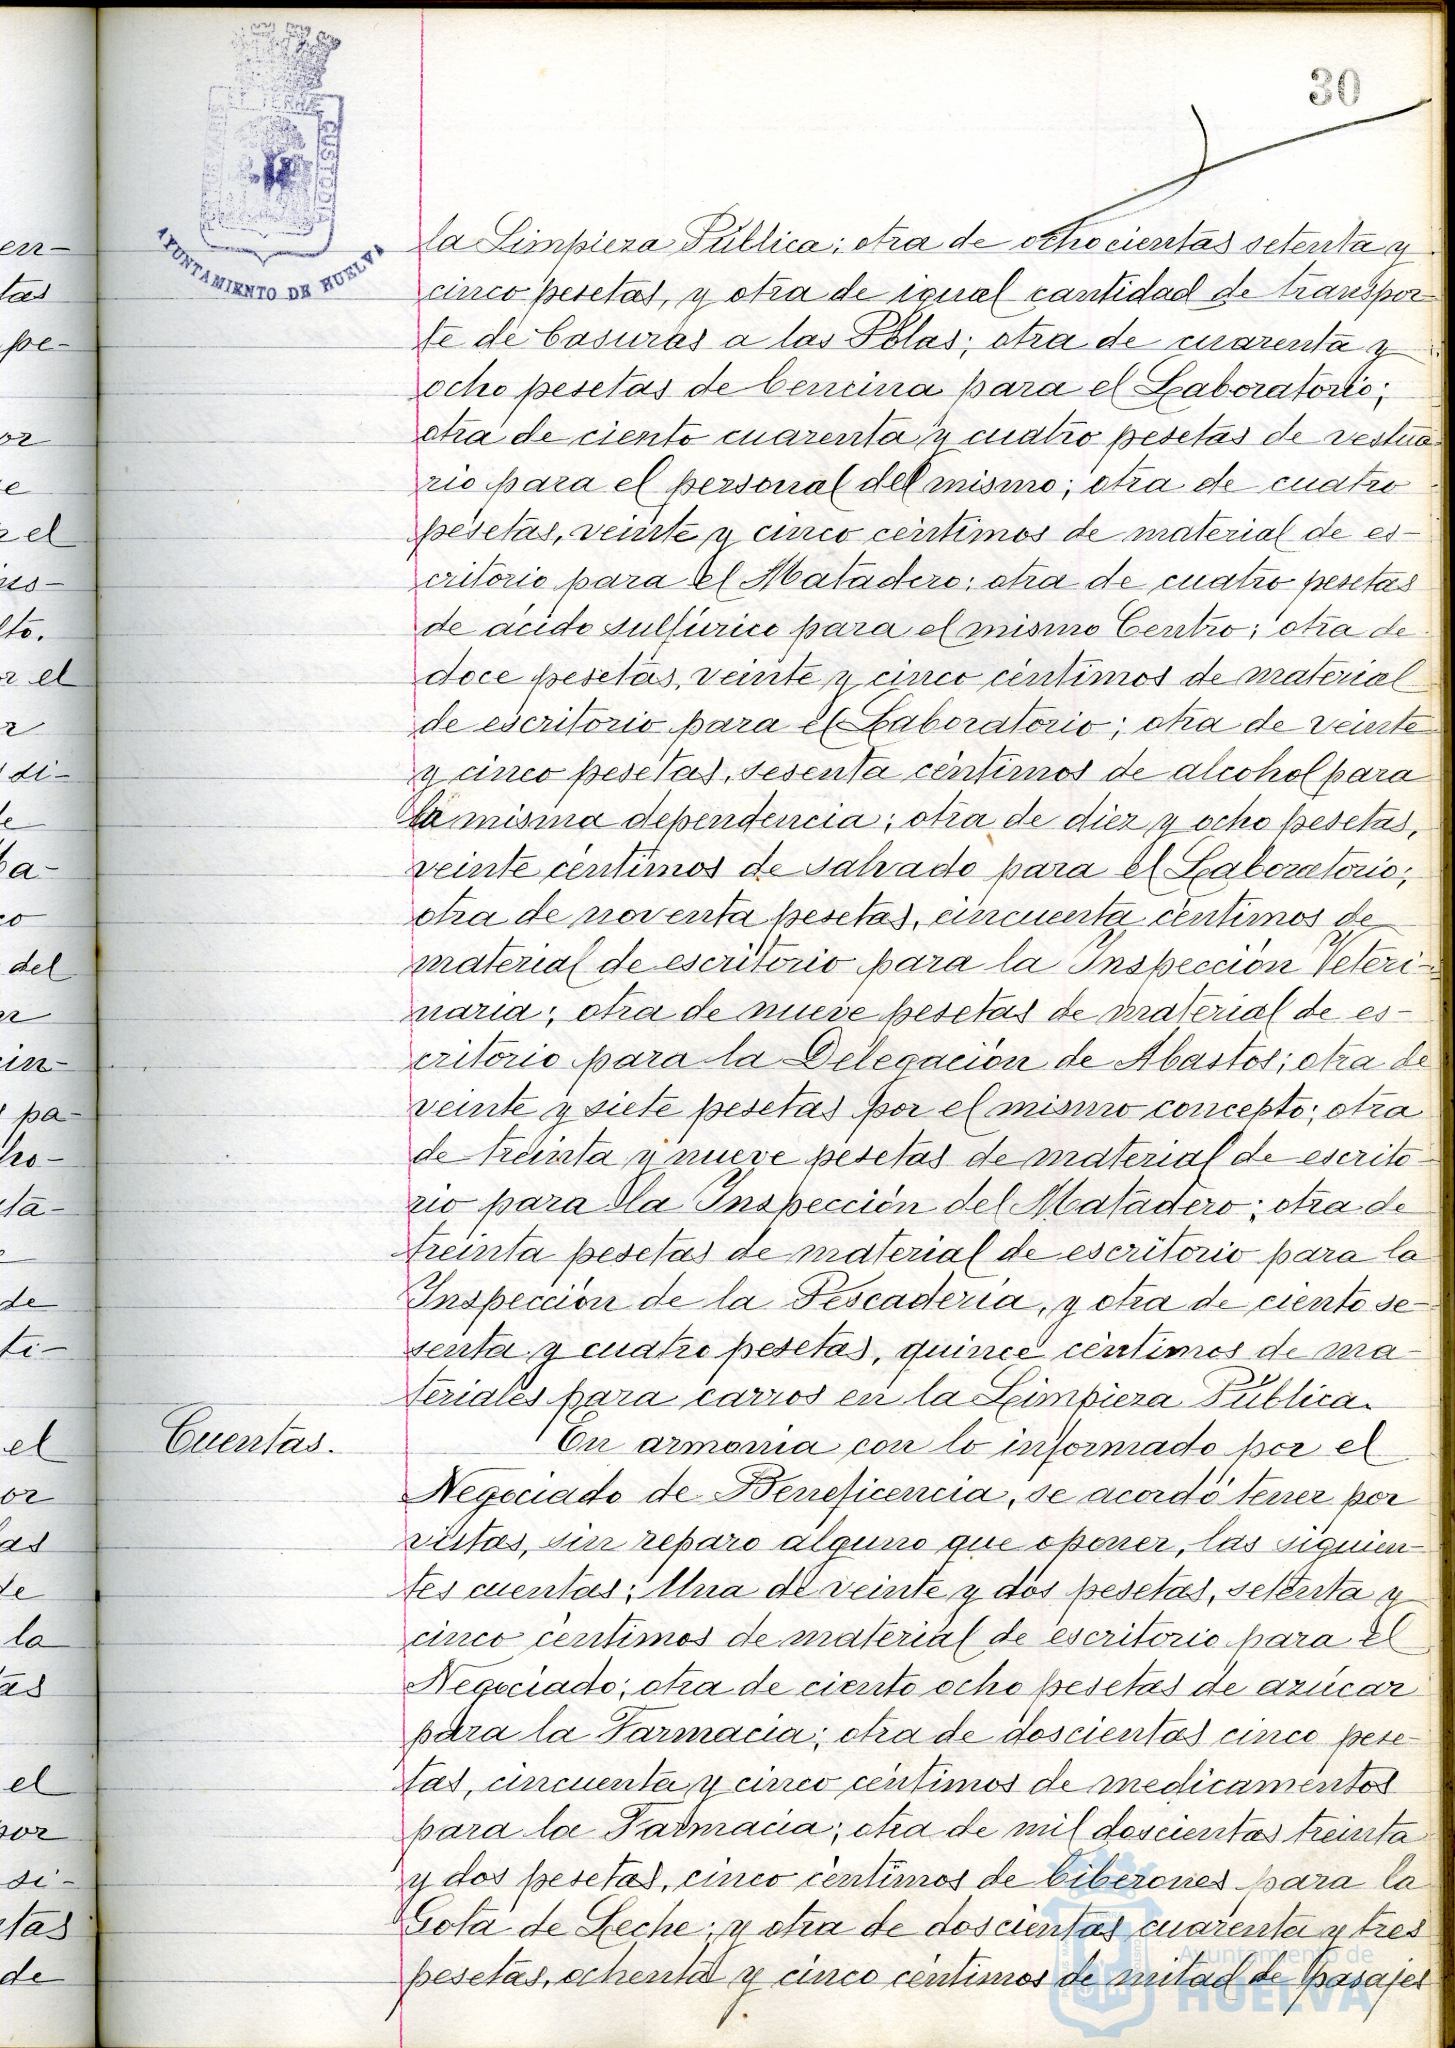 30
AYUNTAMIENTO DE HUELVA
CUSTODIA
la Limpieza Pública; otra de ochocientas setenta y
cinco pesetas, y otra de igual cantidad de transpor-
te de basuras a las Pilas; otra de cuarenta y
ocho pesetas de bencina para el Laboratorio;
otra de ciento cuarenta y cuatro pesetas de vestua-
rio para el personal del mismo; otra de cuatro
pesetas, veinte y cinco céntimos de material de es-
critorio para el Matadero; otra de cuatro pesetas
de ácido sulfúrico para el mismo Centro; otra de
doce pesetas, veinte y cinco céntimos de material
de escritorio para el Laboratorio; otra de veinte
y cinco pesetas, sesenta céntimos de alcohol para
la misma dependencia; otra de diez y ocho pesetas,
veinte céntimos de salvado para el Laboratorio;
otra de noventa pesetas, cincuenta céntimos de
material de escritorio para la Inspección Veteri-
naria; otra de nueve pesetas de material de es-
critorio para la Delegación de Abastos; otra de
veinte y siete pesetas por el mismo concepto; otra
de treinta y nueve pesetas de material de escrito-
rio para la Inspección del Matadero; otra de
treinta pesetas de material de escritorio para la
Inspección de la Pescadería, y otra de ciento se-
senta y cuatro pesetas, quince céntimos de ma-
teriales para carros en la Limpieza Pública.
Cuentas.
En armonía con lo informado por el
Negociado de Beneficencia, se acordó tener por
vistas, sin reparo alguno que oponer, las siguien-
tes cuentas: Una de veinte y dos pesetas, setenta y
cinco céntimos de material de escritorio para el
Negociado; otra de ciento ocho pesetas de azúcar
para la Farmacia; otra de doscientas cinco pese-
tas, cincuenta y cinco céntimos de medicamentos
para la Farmacia; otra de mil doscientas treinta
y dos pesetas, cinco céntimos de biberones para la
Gota de Leche; y otra de doscientas cuarenta y tres
pesetas, ochenta y cinco céntimos de mitad de pasajes
Ayuntamiento de
HUELVA